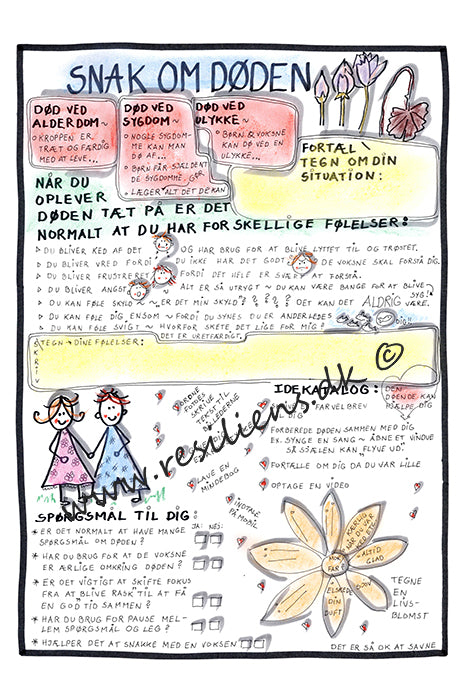 SNAK OM DØDEN
DØD VED
ALDERDOM~
° KROPPEN ER
TRÆT OG FÆRDIG
MED AT LEVE...
DØD VED
SYGDOM~
° NOGLE SYGDOM-
ME KAN MAN
DØ AF...
° BØRN FÅR SJÆLDENT
DE SYGDOMME, 
° LÆGER ALT DET DE KAN
DØD VED
ULYKKE~
° BØRN & VOKSNE
KAN DØ VED EN
ULYKKE...
FORTÆL
TEGN OM DIN
SITUATION:
NÅR DU
OPLEVER
DØDEN TÆT PÅ ER DET
NORMALT AT DU HAR FORSKELLIGE FØLELSER:
DU BLIVER KED AF DET OG HAR BRUG FOR AT BLIVE LYTTET TIL OG TRØSTET.
DU BLIVER VRED FORDI DU IKKE HAR DET GODT DE VOKSNE SKAL FORSTÅ DIG.
DU BLIVER FRUSTRERET FORDI DET HELE ER SVÆRT AT FORSTÅ.
DU BLIVER ANGST ALT ER SÅ UTRYGT ~ DU KAN VÆRE BANGE FOR AT BLIVE SYG!
DU KAN FØLE SKYLD ~ ER DET MIN SKYLD? ? ? ? DET KAN DET ALDRIG VÆRE.
DU KAN FØLE DIG ENSOM ~ FORDI DU SYNES DU ER ANDERLEDES
DU KAN FØLE SVIGT ~ HVORFOR SKETE DET LIGE FOR MIG?
DET ER URETFÆRDIGT.
SKRIV
TEGN DINE FØLELSER:
©
www.resiliens.dk
ORDNE
FOTOS
SKRIVE
TEKST TIL
BILLEDERNE
LAVE EN
MINDEBOG
PÅ MOBIL
IDEKATALOG:
DEN
DØENDE KAN
HJÆLPE DIG
FARVELBREV
FORBEREDE DØDEN SAMMEN MED DIG
EX. SYNGE EN SANG ~ ÅBNE ET VINDUE
SÅ SJÆLEN KAN "FLYVE UD".
FORTÆLLE OM DIG DA DU VAR LILLE
OPTAGE EN VIDEO
SPØRGSMÅL TIL DIG:
JA: NEJ:
* ER DET NORMALT AT HAVE MANGE
SPØRGSMÅL OM DØDEN?
* HAR DU BRUG FOR AT DE VOKSNE
ER ÆRLIGE OMKRING DØDEN?
* ER DET VIGTIGT AT SKIFTE FOKUS
FRA AT BLIVE "RASK" TIL AT FÅ
EN GOD TID SAMMEN?
* HAR DU BRUG FOR PAUSE MEL-
LEM SPØRGSMÅL OG LEG?
* HJÆLPER DET AT SNAKKE MED EN VOKSEN
KÆRLIG
ALTID
GLAD
FAR?
ELSKEDE
DIN
DUFT
SJOV
TEGNE
EN
LIVS-
BLOMST
DET ER SÅ OK AT SAVNE